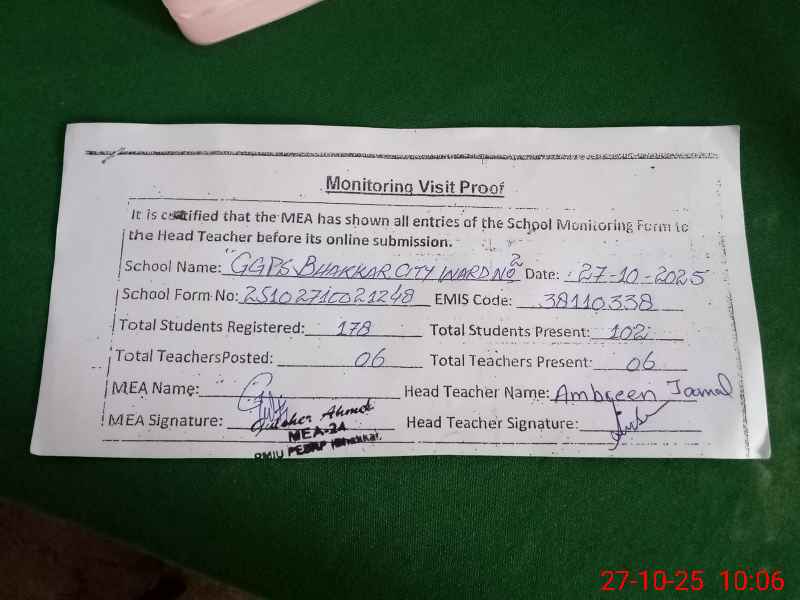 Monitoring Visit Proof
It is certified that the MEA has shown all entries of the School Monitoring Form to
the Head Teacher before its online submission.
School Name: GGPS BHAKKAR CITY WARD NO 2 Date: 27-10-2025
School Form No: EMIS Code: 38110338
Total Students Registered: 178 Total Students Present: 102
Total TeachersPosted: 06 Total Teachers Present: 06
MEA Name: Head Teacher Name: Ambreen
MEA Signature: Head Teacher Signature:
Ahmed
MEA-24
PMIU PESRP Bhakkar
27-10-25 10:06